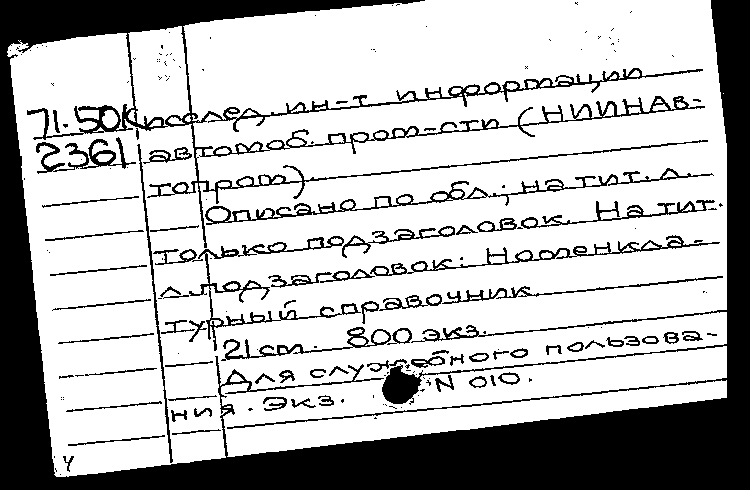 71-50К исслед. ин-т информации
2361 автомоб. пром-сти (НИИНАв-
топром).
Описано по обл.; на тит. л.
только подзаголовок. На тит.
л. подзаголовок: Номенкла-
турный справочник.
21 cm. 800 экз.
Для служебного пользова-
ния. Экз. N 010.